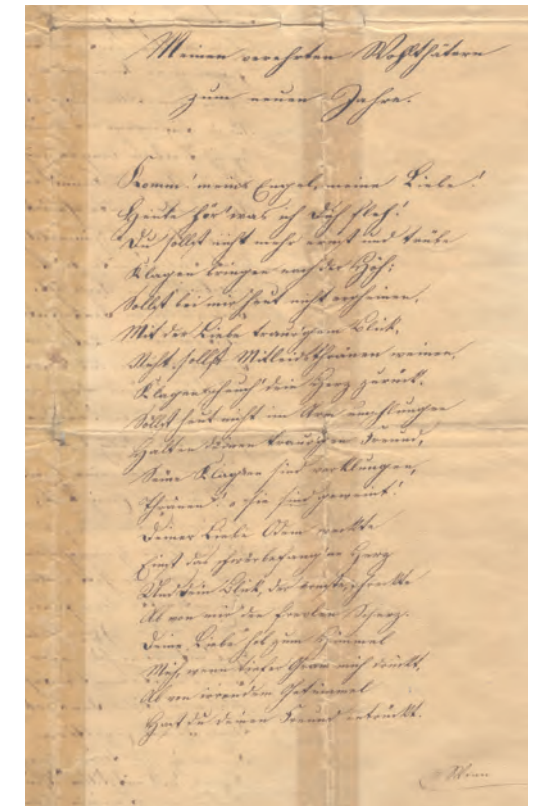 Meinen verehrten Wohlthätern
zum neuen Jahre.
Komm! meine Engel, meine Liebe!
Heute hör' was ich Dich fleh'!
Du sollst nicht mehr ernst und trübe
Klagen bringen nach der Höh;
Sollst bei mir heut nicht erscheinen,
Mit der Liebe traurigem Blick,
Nicht sollst Mitleidsthränen weinen,
Klagen scheuch' dein Herz zurück.
Sollst heut nicht im Arm umschlungen
Halten deinen traurigen Freund,
Seine Klagen sind verklungen,
Thränen! sie sind geweint!
Deiner Liebe Odem weckte
Einst das Herz
Und dein Blick, der ernste, schreckte
Ab von mir den frevlen Scherz.
Deine Liebe hob zum Himmel
Mich, wenn tiefer Gram mich drückt,
Ab von irrendem Getümmel
Hast du deinen Freund entrückt.